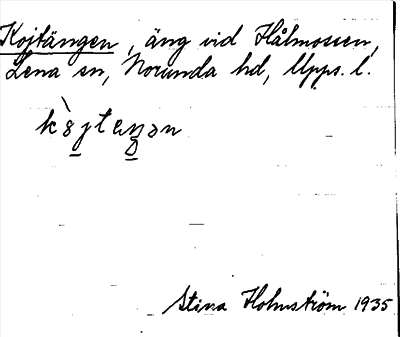 Kojtängen, äng vid Hålmossen,
Lena sn, Norunda hd, Upps. l.
Stina Holmström 1935